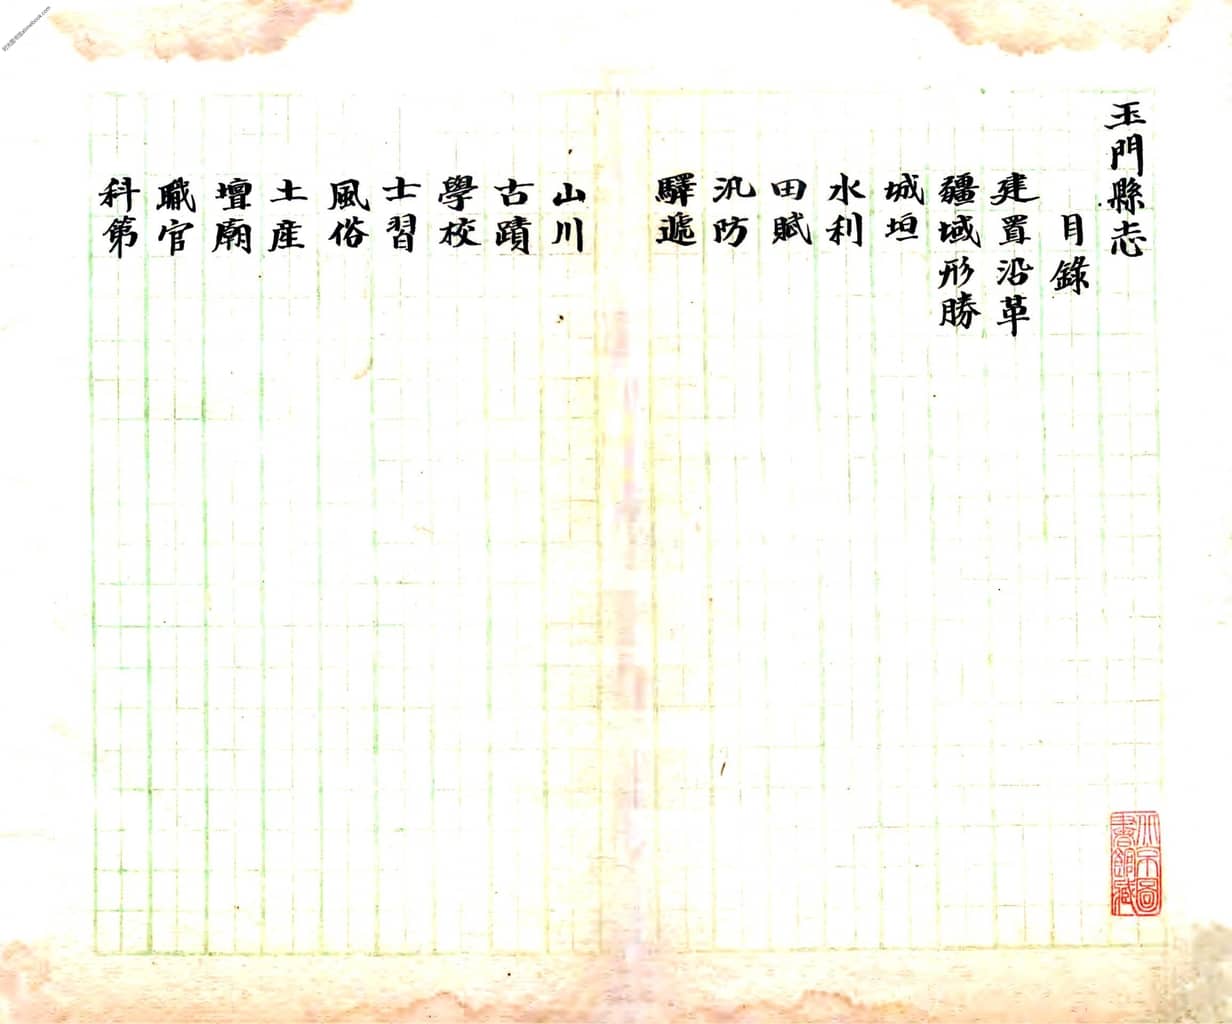 玉門縣志
目錄
建置沿革
疆域形勝
城垣
水利
田賦
汛防
驛遞
山川
古蹟
學校
士習
風俗
土産
壇廟
職官
科第
北京圖
書館藏